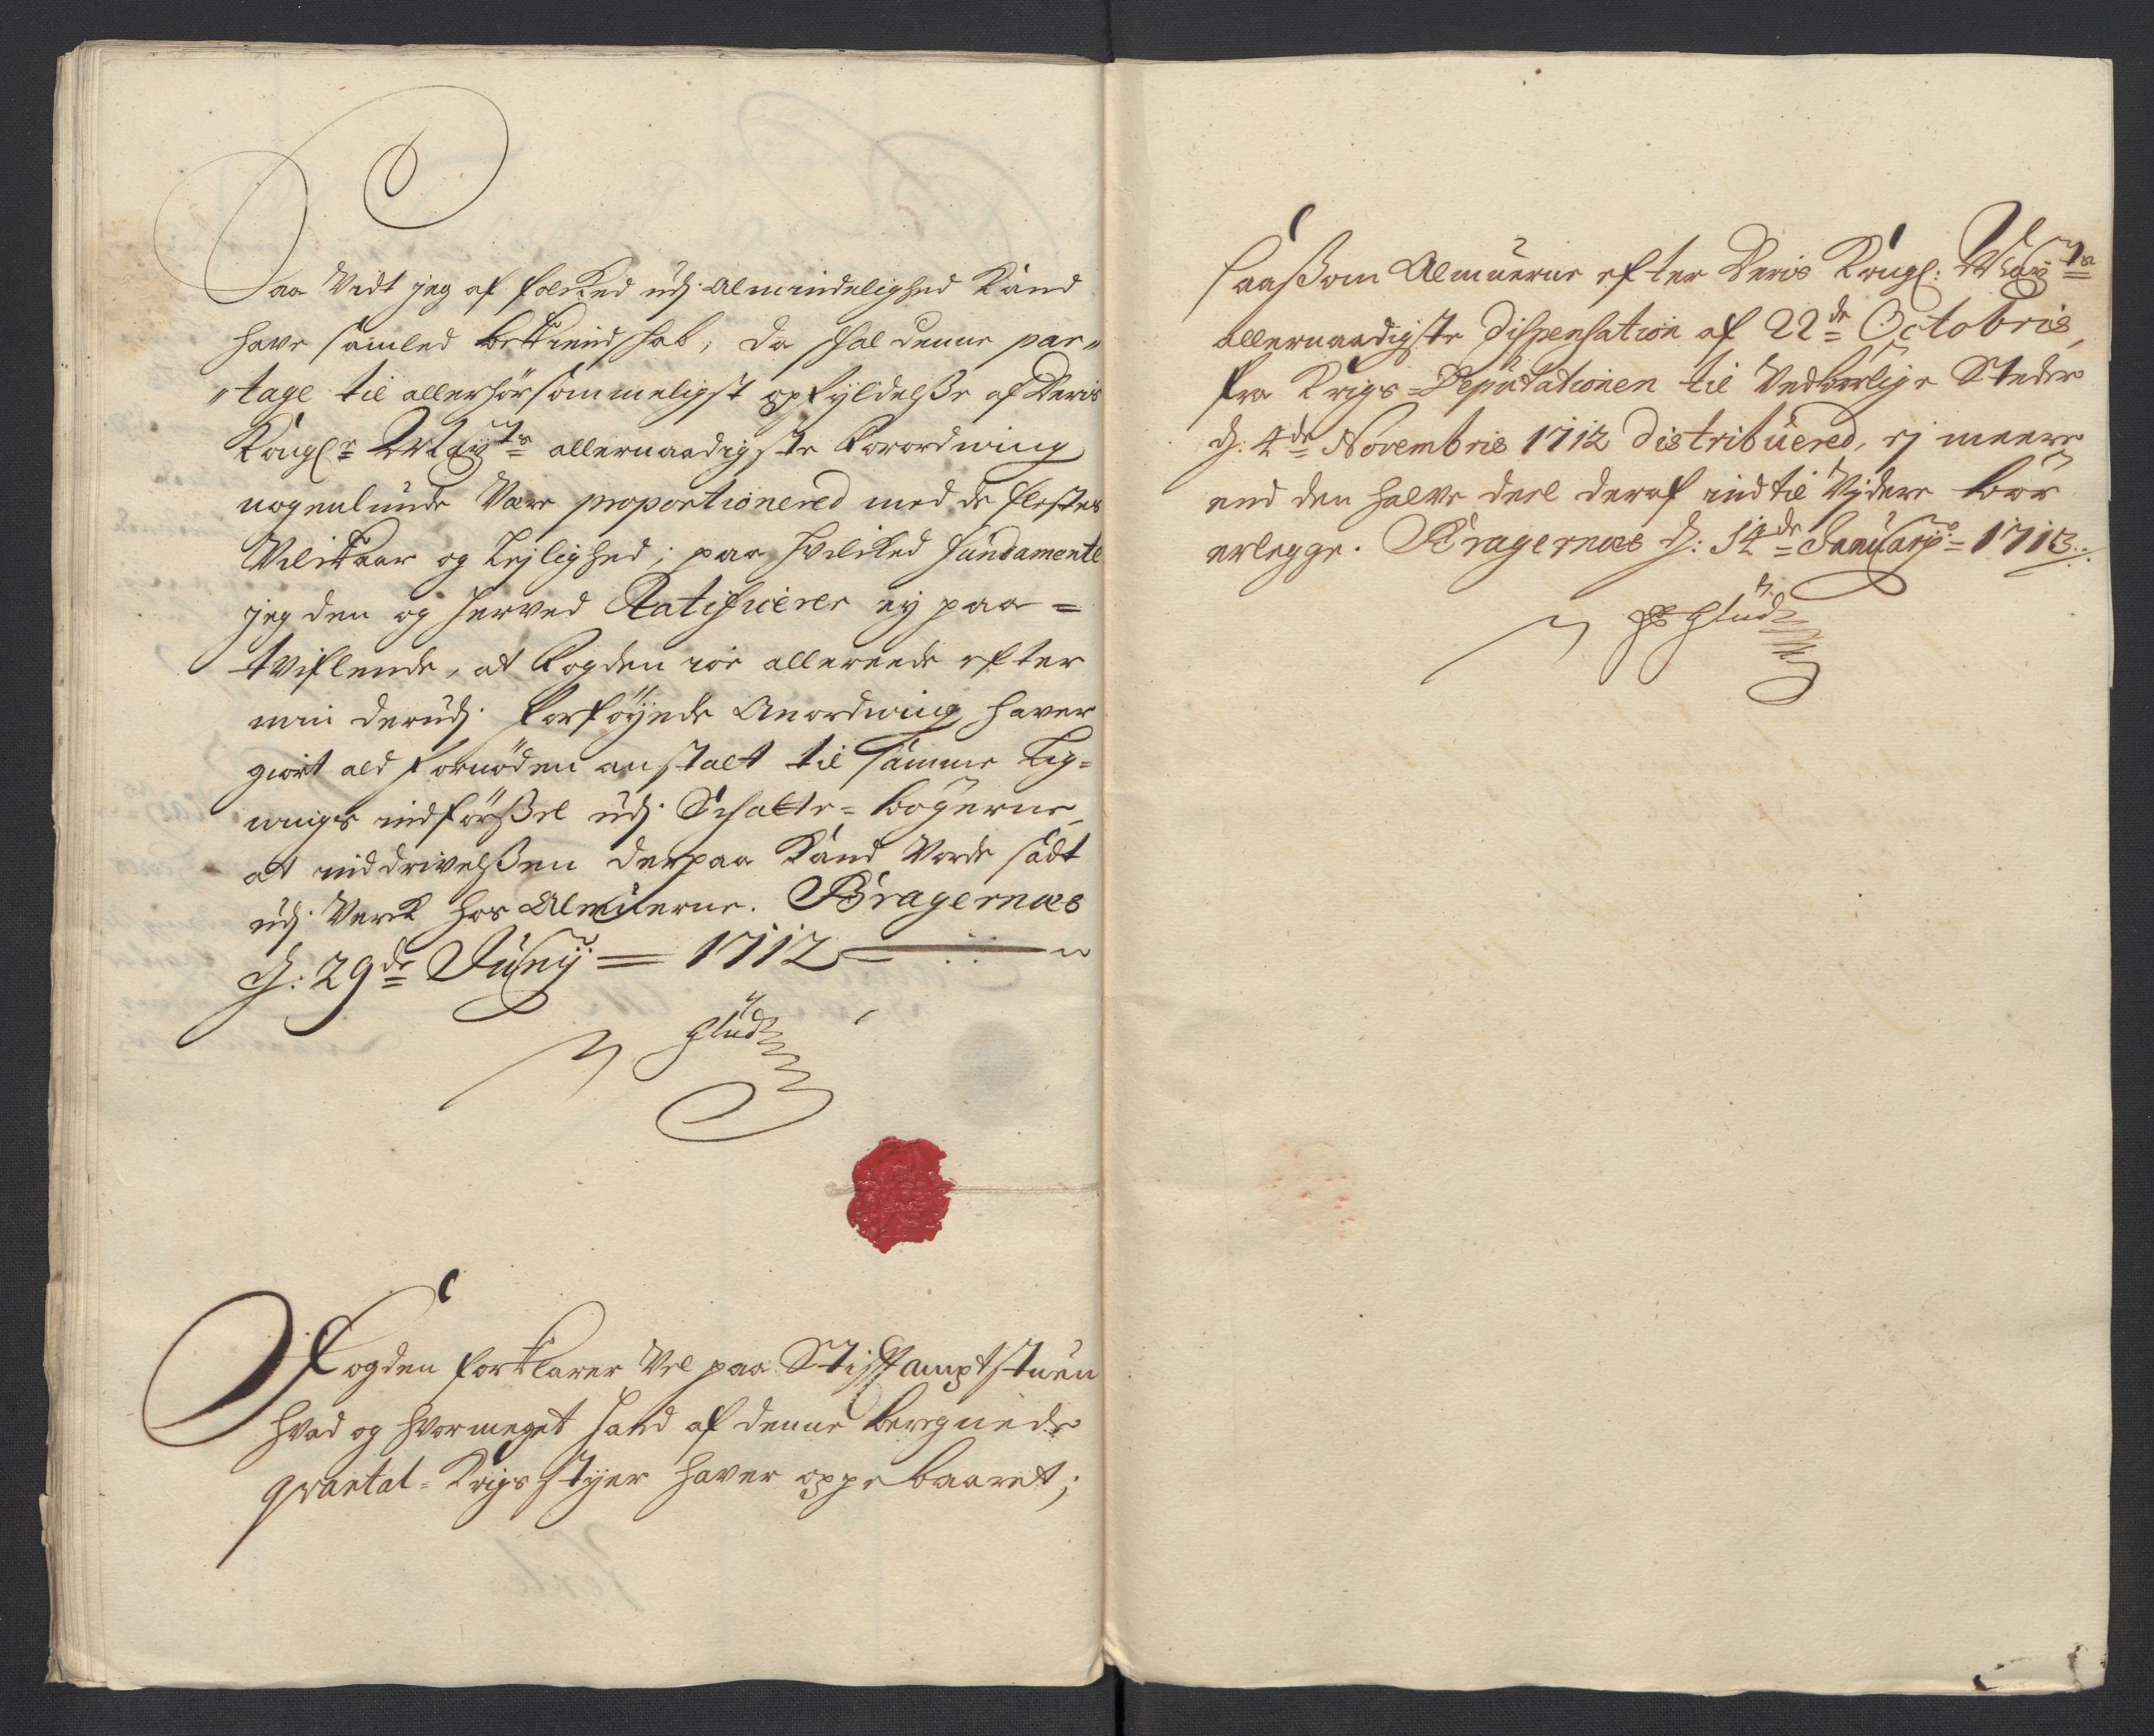 Saa Vidt jeg af folcked udj Almindelighed Kand
have samled bekiendskab, da skal denne par„
„tage til allerhørsommeligst opfyldelsse af Deris
Kongl: Mayts allernaadigste Forordning
nogenlunde Være proportionered med de flestes
Vilckaar og Lejlighed; paa hvilcked fundamente
jeg den og herved Ratificerer ey paa=
tviflende, at Fogden jo allereede efter
min derudj forføyede Anordning haver
giort ald fornøden anstalt til samme Lig=
nings indførssel udj Schatte=bøgerne,
at inddrivelssen derpaa Kand Vorde sadt
udj Verck hos Almuerne. Bragernæs
d: 29de Junij = 1712
Glud
Fogden forklarer Vel paa Stiftamptstuen
hvad og hvormeget hand af denne beregnede
qvantal=Krigs styer haver oppebaaret;
saasom Almuerne efter Deris Kongl: Mayts
allernaadigste Dispensation af 22de Octobris,
fra Krigs=Deputationen til Vedbørlige Steder
d: 4de Novembris 1712 distribuered, ej meere
end den halve deel deraf indtil Vjdere bør
erlegge. Bragernæs d: 14de Januarij 1713
Glud